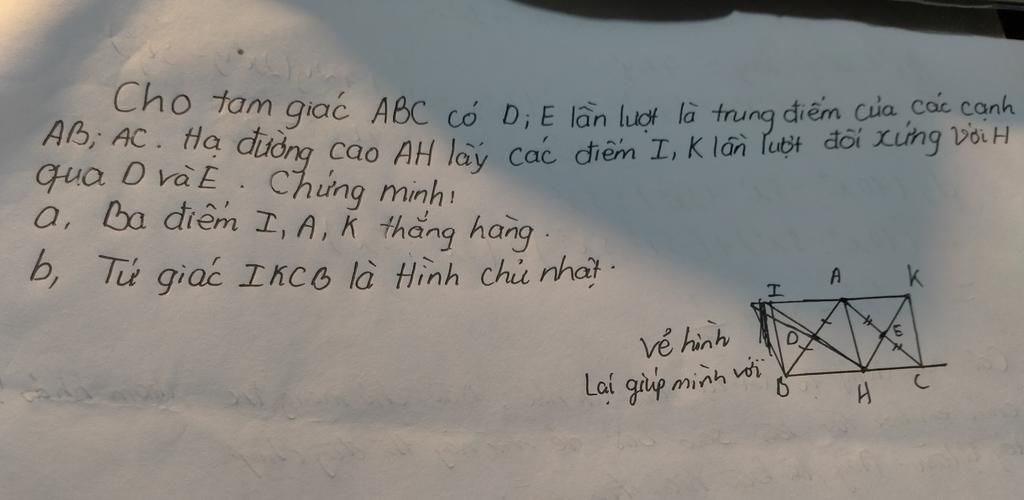 Cho tam giác ABC có D; E lần lượt là trung điểm của các cạnh
AB; AC. Hạ đường cao AH lấy các điểm I, K lần lượt đối xứng với H
qua D và E. Chứng minh:
a, Ba điểm I, A, K thẳng hàng.
b, Tứ giác IKCB là Hình chữ nhật.
I A K
D E
B H C
vẽ hình
Lại giúp mình với